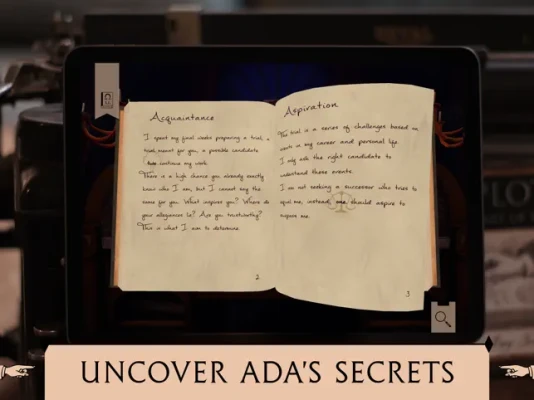 Acquaintance
I spent my final weeks preparing a trial, a
trial meant for you, a possible candidate
to continue my work.
There is a high chance you already exactly
know who I am, but I cannot say the
same for you. What inspires you? Where do
your allegiances lie? Are you trustworthy?
This is what I aim to determine.
2
Aspiration
The trial is a series of challenges based on
events in my career and personal life.
I rely on the right candidate to
understand these events.
I am not seeking a successor who tries to
equal me, instead, one should aspire to
surpass me.
3
UNCOVER ADA'S SECRETS